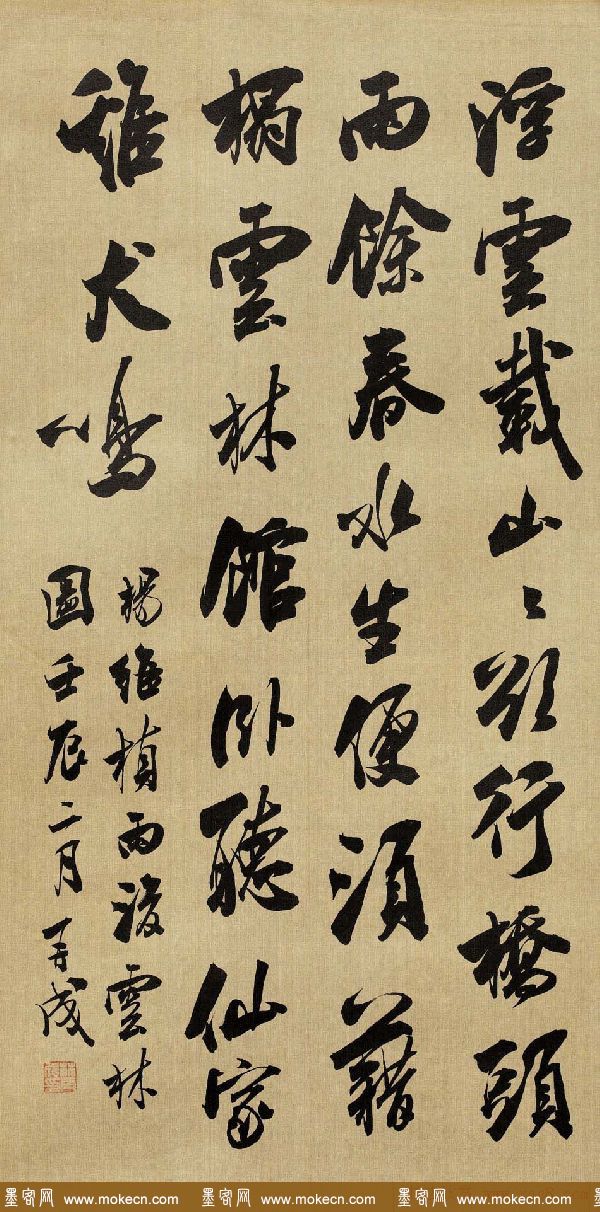 浮雲載山〻欲行橋頭
雨餘春水生便須藉
榻雲林館卧聽仙家
雞犬鳴
楊維楨雨後雲林
圖壬辰二月善成
墨客网 www.mokecn.com 墨客网 www.mokecn.com 墨客网 www.mokecn.com